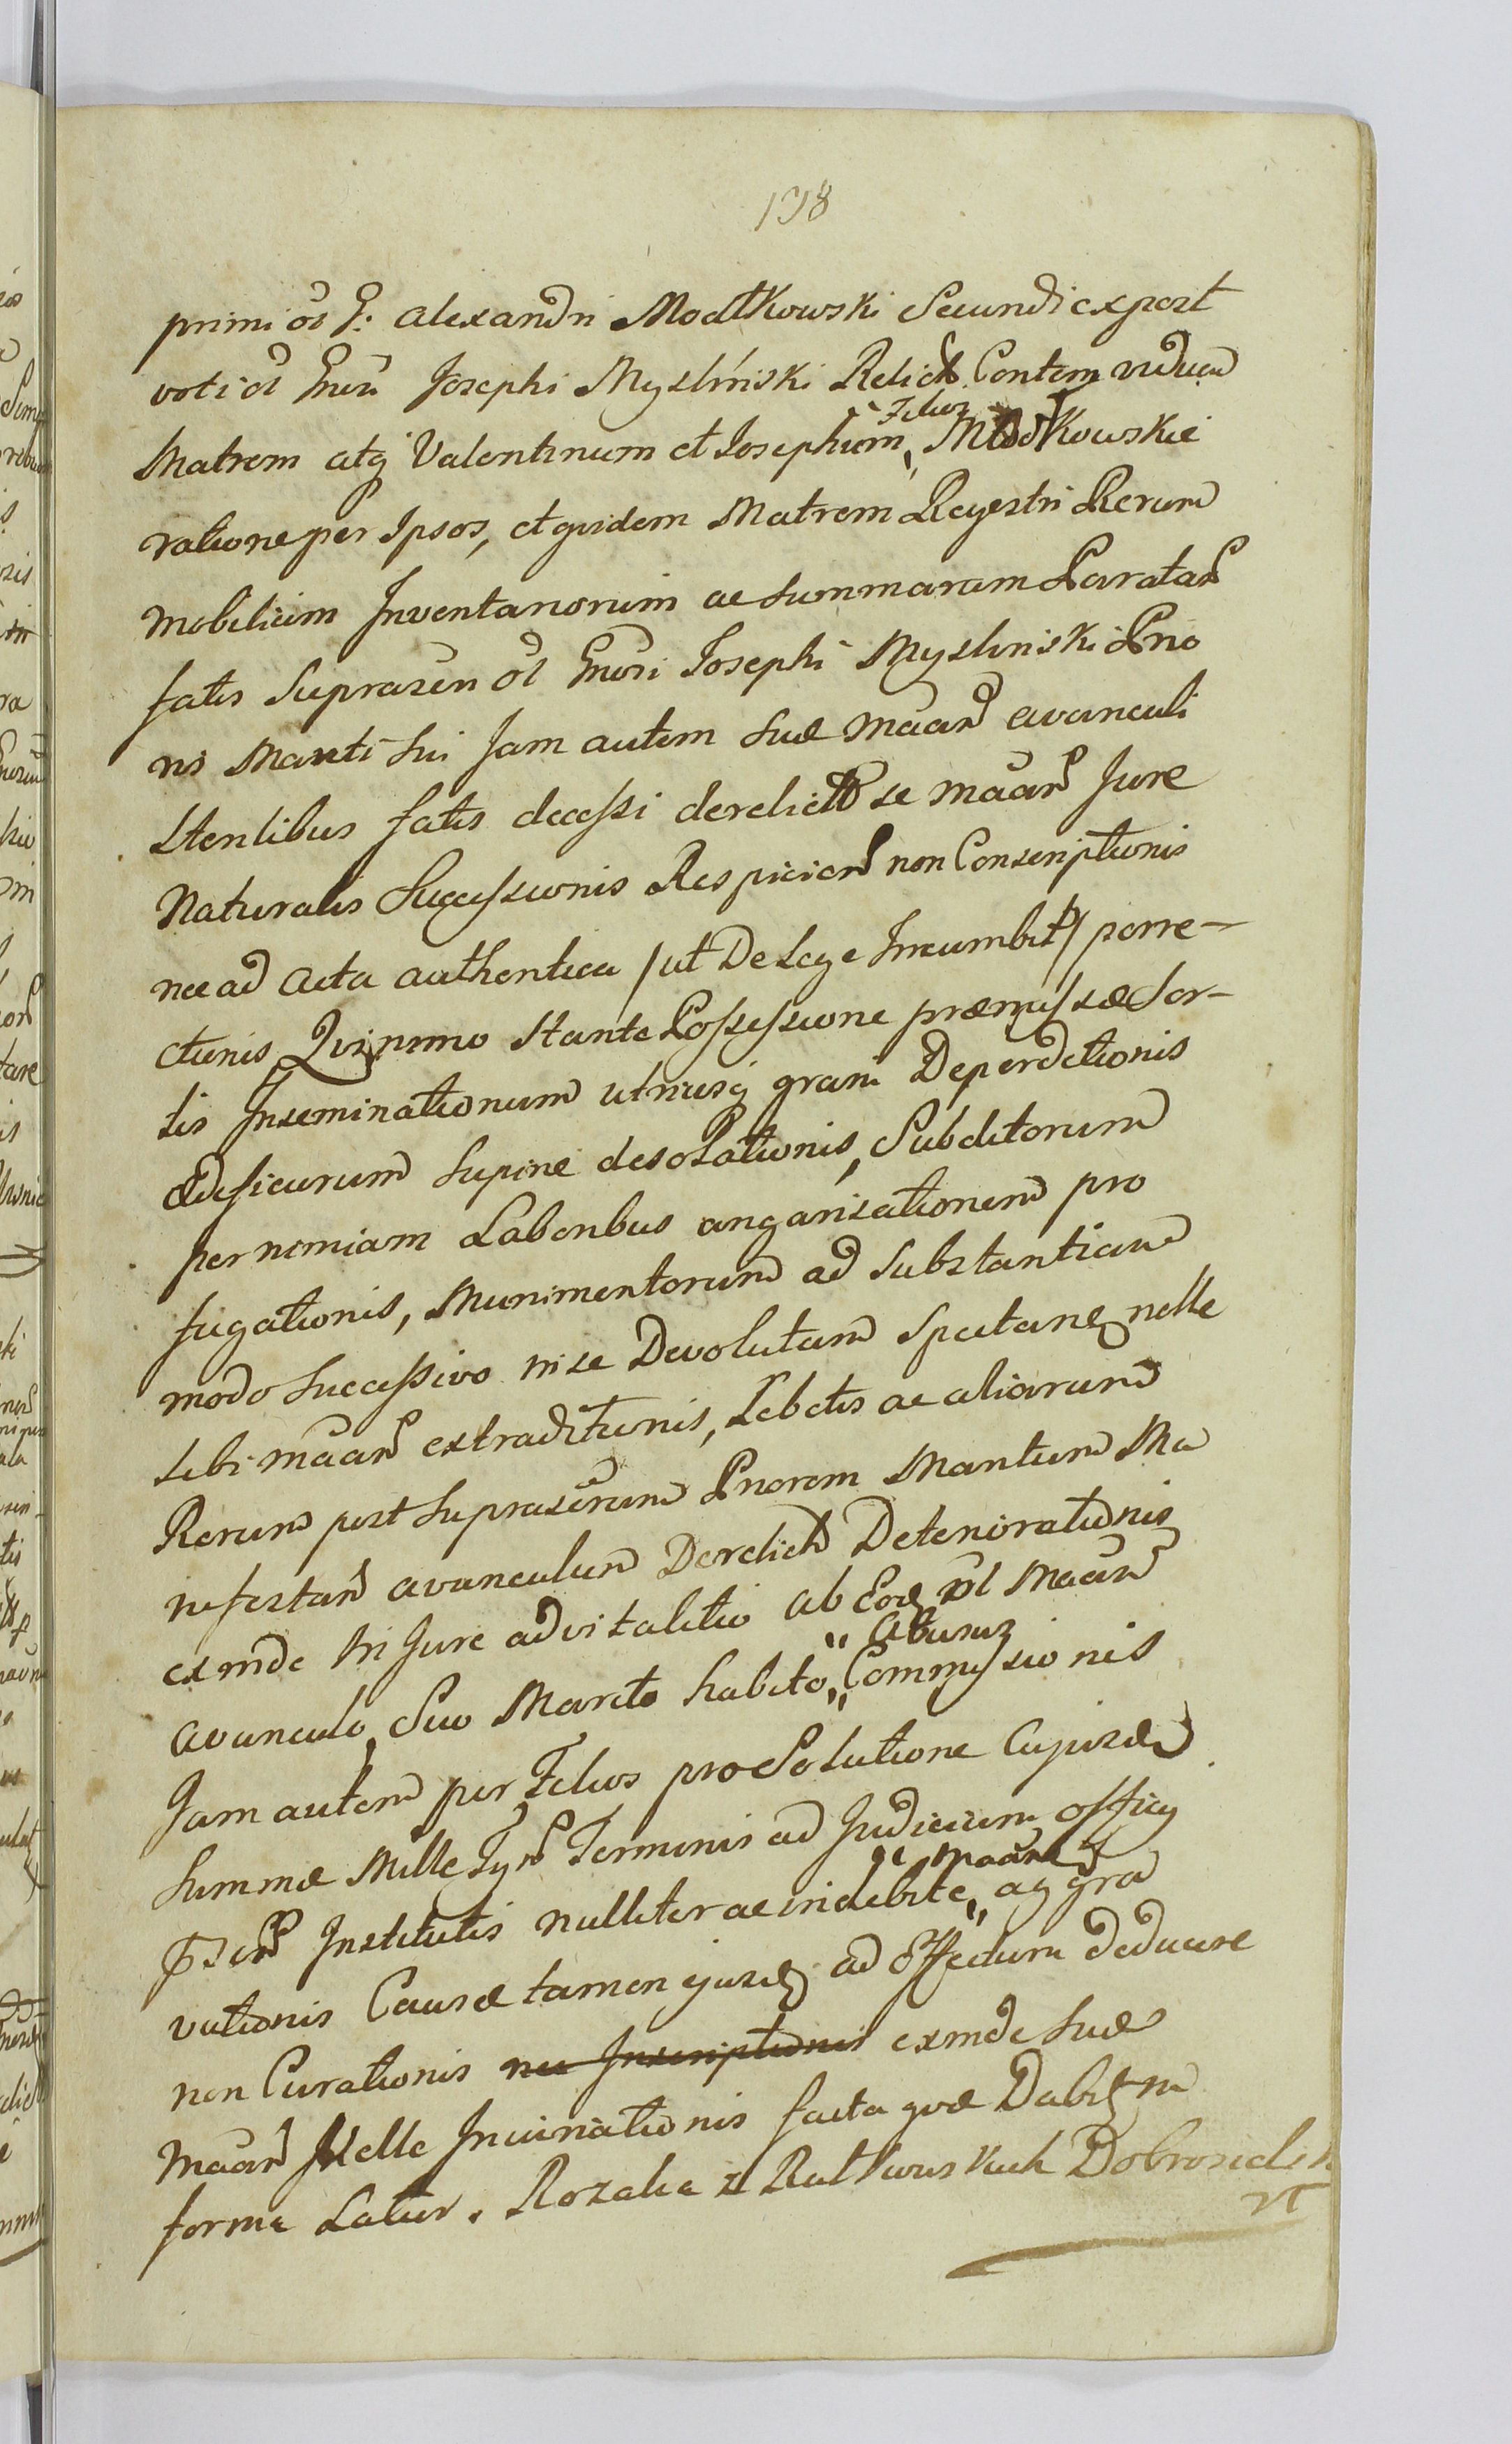 138
primi ōl G: Alexandri Modtkowski Secundi expost
voti ōl Gnēri Josephi Myslinski Relictā Contem viduam
Matrem atq Valentinum et Josephum Filios Młodkowskie
ratione per Ipsos, et quidem Matrem Regestri Rerum
Mobilium Inventariorum ac Summarum Paratarū
fatis Suprascri ōl Gnōsi Josephi Myslinski Prio
ris Mariti Sui Jam autem Suæ Maarū avunculi
Stenlibus fatis decessi derelict se maarū Jure
Naturalis Successionis Respicien non Conscriptionis
nec ad Acta Authentica /ut De Lege Incumbit/ porre-
ctionis Quinimo Stante Possessione præmissæ Sor-
tis Inseminationum utriusq grani Deperditionis
Ædificiorum Supine desolationis, Subditorum
per nimiam Laboribus angarisationem pro
fugationis, Munimentorum ad Substantiam
modo Successivo in se Devolutam Spectanq nelle
Sibi māarū extraditionis, Lebetis ac aliarum
Rerum post Suprascrum Priorem Maritum Ma
nifestan avunculum Derelict Deteriorationis
exinde in Jure advitalitio ab Eodq ōl Maarū
avunculo, Suo Marito habito, Abusus Commissionis
Jam autem per Filios pro Solutione Cujusdā
Summæ Mille Tyn Terminis ad Judicium officy
Insti Institutis nulliter ac indebite, se Maarē aggra
vationis Causæ tamen ejusdq ad Effectum deducere
non Curationis nec Inscriptionis exinde Suæ
Maarū Nelle Incuinationis facta quæ Dabit in
forma Latior. Rozalia z Rutkowskich Dobrosielsk